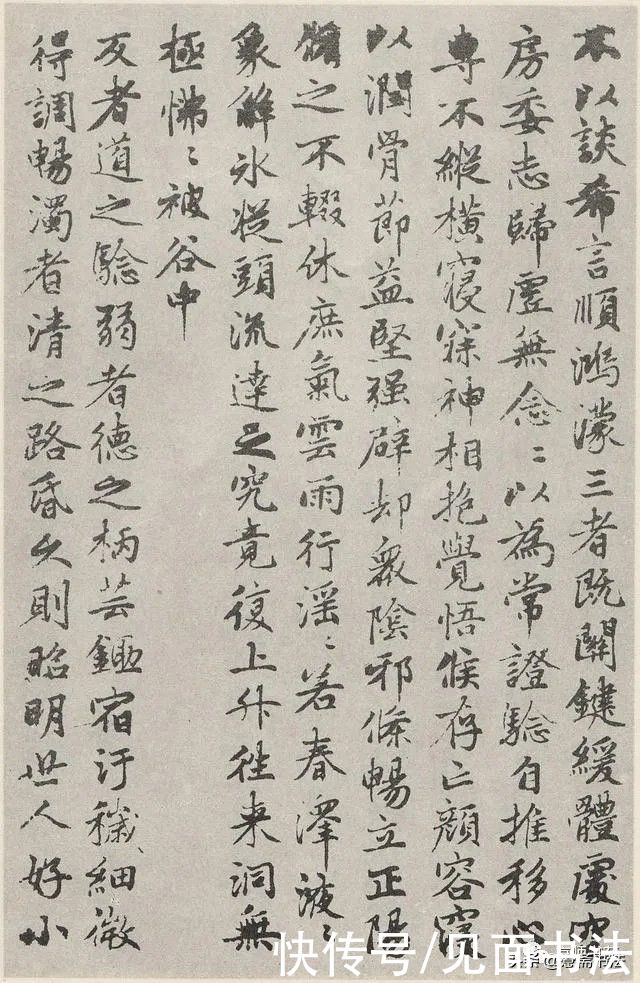 不以談希言順鴻濛三者既關鍵緩體處空
房委志歸虛無念〻以為常證驗自推移心
專不縱橫寢寐神相抱覺悟候存亡顏容寖
以潤骨節益堅强辟却衆陰邪條暢立正陽
脩之不輟休庶氣雲雨行滛〻若春澤液〻
象解氷從頭流達之究竟復上升往來洞無
極怫〻被谷中
反者道之驗弱者德之柄芸鋤宿汙穢細微
得調暢濁者清之路昏久則昭明世人好小
快传号/见面书法